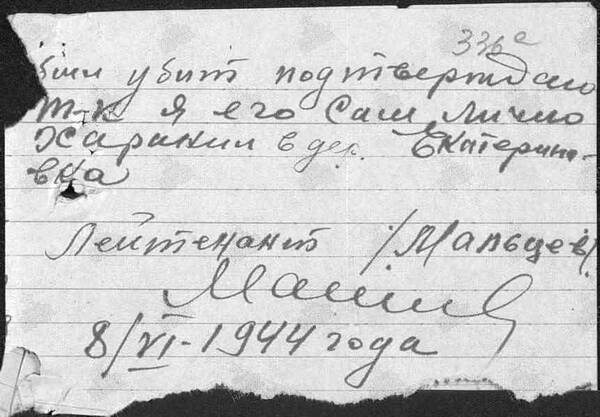 336а
был убит подтверждаю
т-к я его сам лично
харанил в дер. Екатерино-
вка
Лейтенант /Мальцев/
8/VI-1944 года